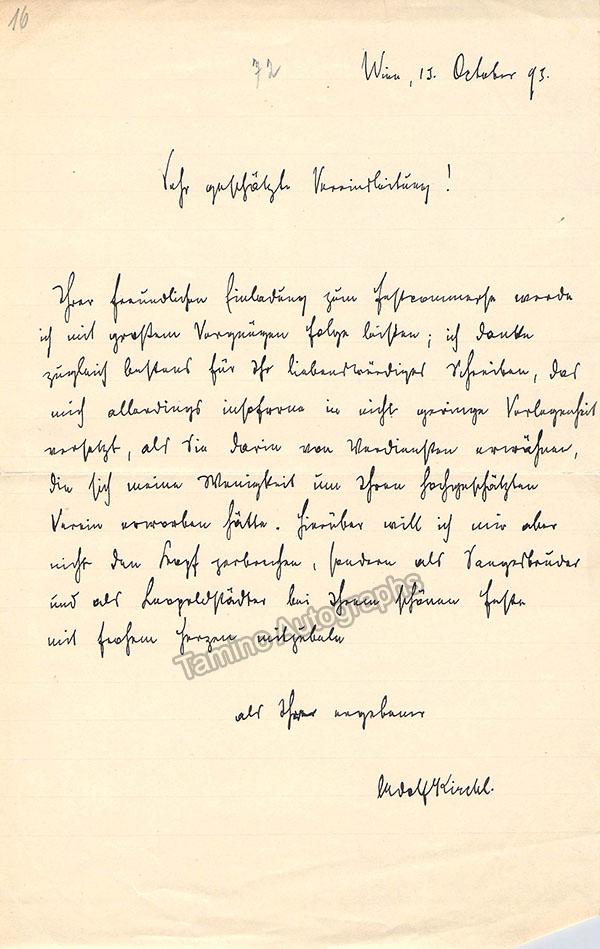 16
72
Wien, 13. October 93.
Sehr geschätzte Vereinsleitung!
Ihrer freundlichen Einladung zum Festcommerse werde
ich mit großem Vergnügen Folge leisten; ich danke
zugleich bestens für Ihr liebenswürdiges Schreiben, das
mich allerdings insoferne in nicht geringe Verlegenheit
versetzt, als Sie darin von Verdiensten erwähnen,
die sich meine Wenigkeit um Ihren hochgeschätzten
Verein erworben hätte. Hierüber will ich mir aber
nicht den Kopf zerbrechen, sondern als Sangesbruder
und als Leopoldstädter bei Ihrem schönen Feste
mit frohem Herzen mitjubeln
als Ihr ergebener
Adolf Kirchl.
Tamino Autographs